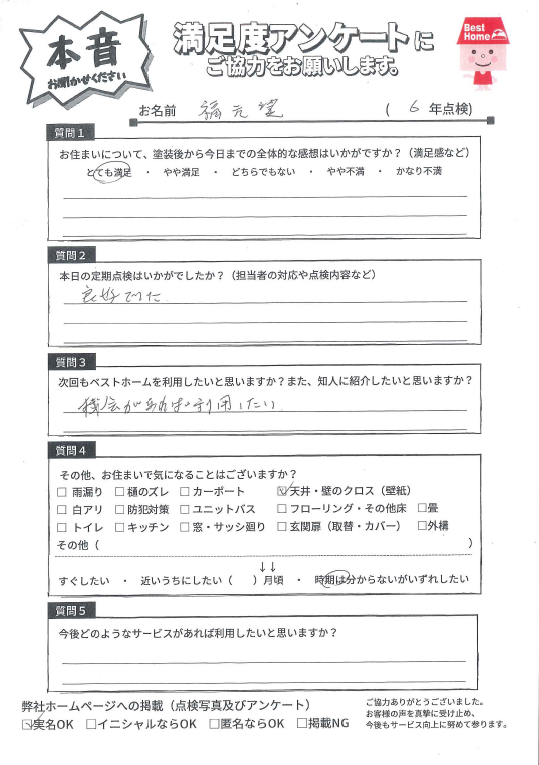 本音
お聞かせください
満足度アンケートに
ご協力をお願いします。
Best Home
お名前 福元 望 ( 6 年点検)
質問1
お住まいについて、塗装後から今日までの全体的な感想はいかがですか？（満足感など）
とても満足 ・ やや満足 ・ どちらでもない ・ やや不満 ・ かなり不満
質問2
本日の定期点検はいかがでしたか？（担当者の対応や点検内容など）
良好でした
質問3
次回もベストホームを利用したいと思いますか？また、知人に紹介したいと思いますか？
機会があれば利用したい
質問4
その他、お住まいで気になることはございますか？
□ 雨漏り □ 樋のズレ □ カーポート ☑ 天井・壁のクロス（壁紙）
□ 白アリ □ 防犯対策 □ ユニットバス □ フローリング・その他床 □畳
□ トイレ □ キッチン □ 窓・サッシ廻り □ 玄関扉（取替・カバー） □外構
その他（ ）
↓↓
すぐしたい ・ 近いうちにしたい（ ）月頃 ・ 時期は分からないがいずれしたい
質問5
今後どのようなサービスがあれば利用したいと思いますか？
弊社ホームページへの掲載（点検写真及びアンケート）
☑実名OK □イニシャルならOK □匿名ならOK □掲載NG
ご協力ありがとうございました。
お客様の声を真摯に受け止め、
今後もサービス向上に努めて参ります。